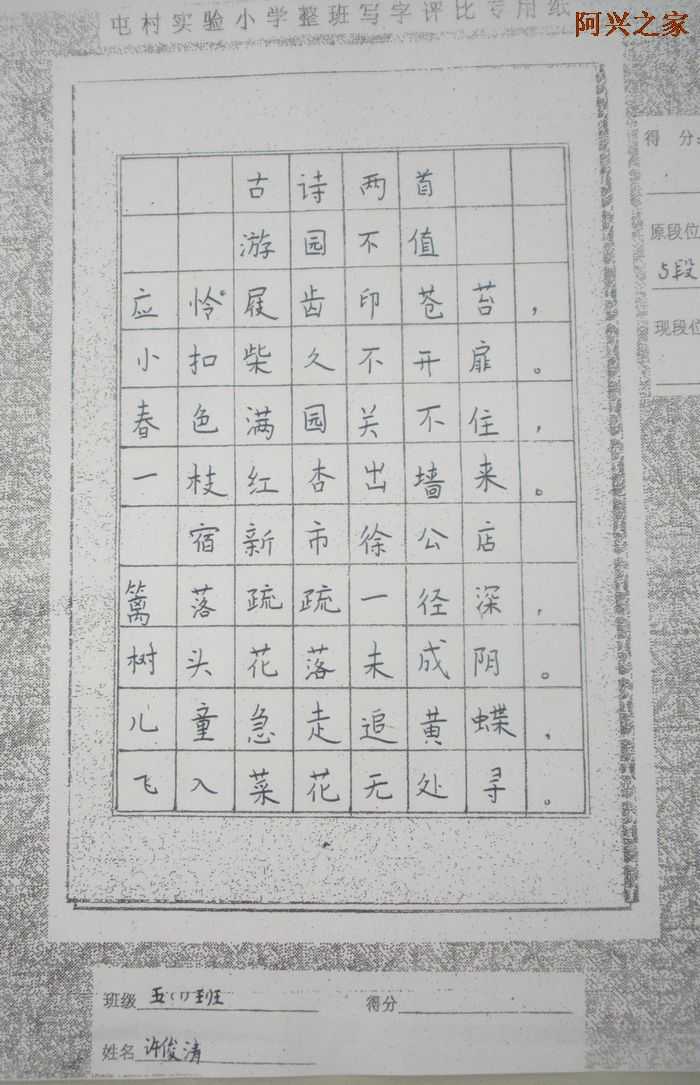 屯村实验小学整班写字评比专用纸
阿兴之家
得 分:
原段位
5段
现段位
古诗两首
游园不值
应怜屐齿印苍苔，
小扣柴久不开扉。
春色满园关不住，
一枝红杏出墙来。
宿新市徐公店
篱落疏疏一径深，
树头花落未成阴。
儿童急走追黄蝶，
飞入菜花无处寻。
班级 五(1)班 得分
姓名 许俊清